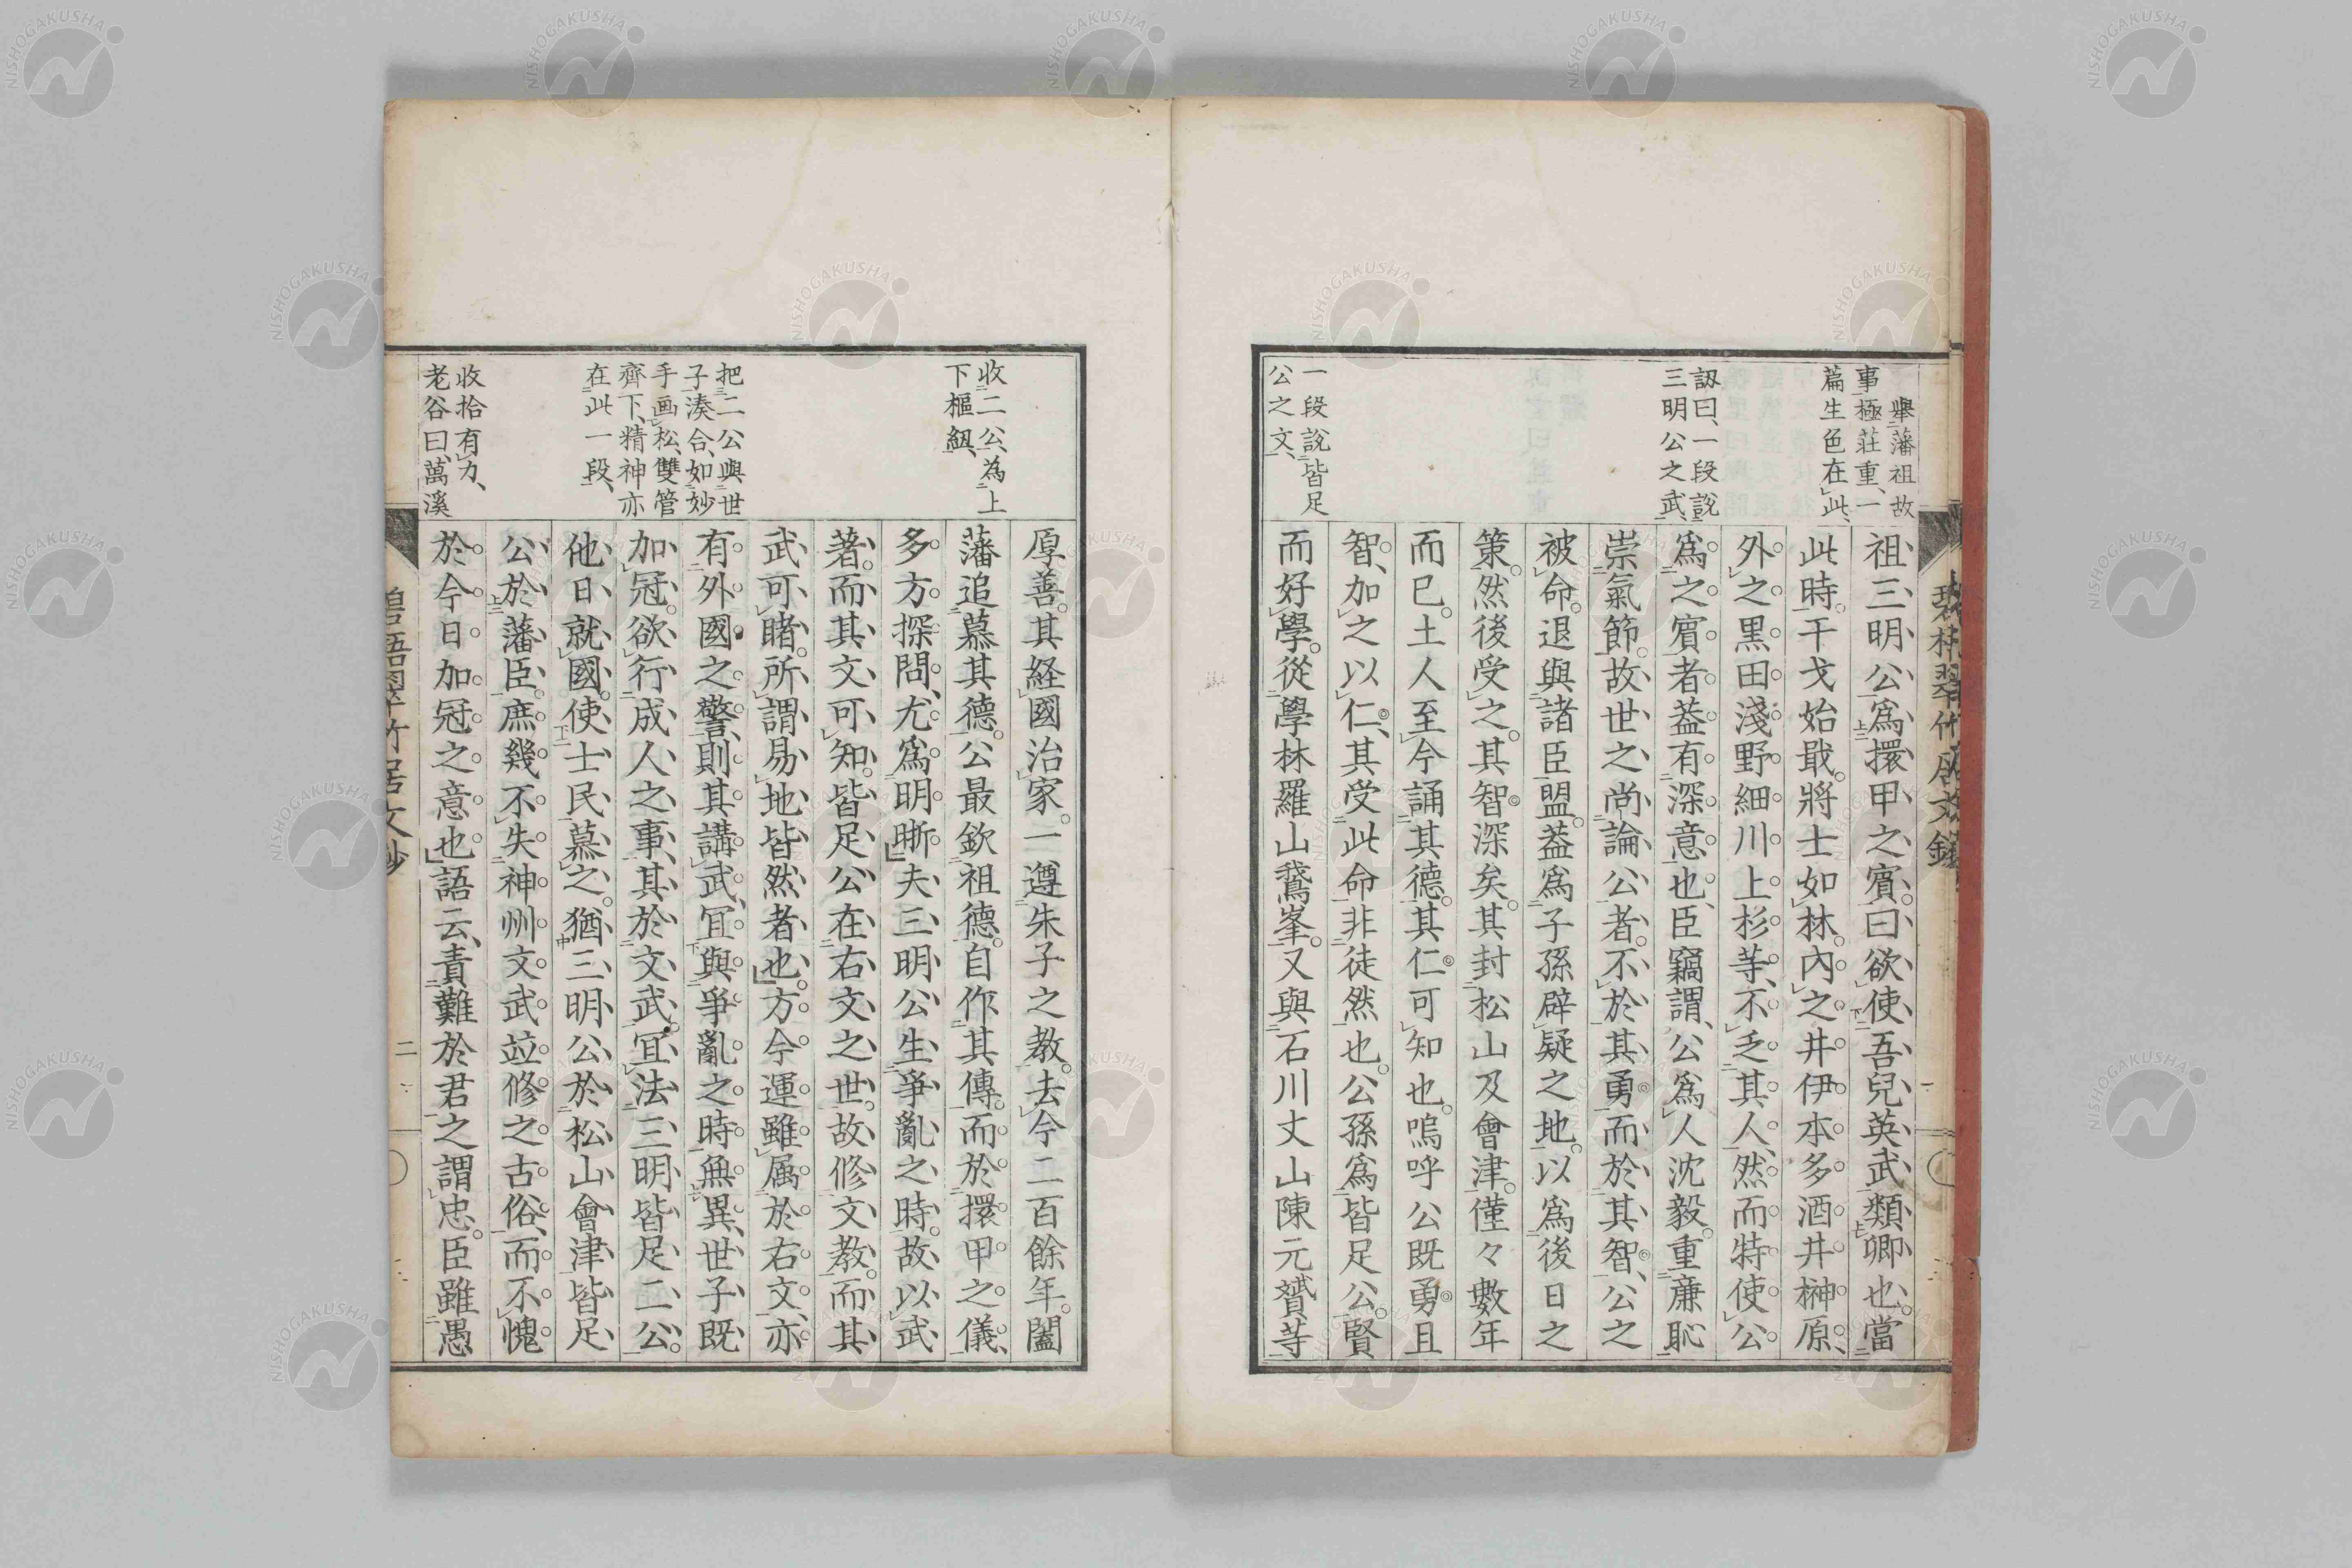 擧藩祖故
事極莊重、一
篇生色在此、
認曰、一段說
三明公之武、
一段說皆足
公之文、
祖三明公爲擐甲之賓。曰欲使吾兒英武類卿也。當
此時。干戈始戢。將士如林。內之井伊本多酒井榊原、
外之黑田淺野細川上杉等、不乏其人、然而特使公
爲之賓者。葢有深意也、臣竊謂、公爲人沈毅。重廉恥
崇氣節。故世之尚論公者。不於其勇而於其智、公之
被命。退與諸臣盟。葢爲子孫辟疑之地。以爲後日之
策。然後受之。其智深矣。其封松山及會津。僅々數年
而已。土人至今誦其德。其仁可知也。嗚呼公既勇且
智、加之以仁、其受此命非徒然也。公孫爲皆足公。賢
而好學。從學林羅山鵞峯。又與石川丈山陳元贇等
收二公、爲上
下樞紐、
把二公與世
子湊合、如妙
手画松、雙管
齊下、精神亦
在此一段、
收拾有力、
老谷曰、萬溪
厚善。其経國治家。一遵朱子之教。去今二百餘年。闔
藩追慕其德。公最欽祖德。自作其傳。而於擐甲之儀、
多方探問、尤爲明晰。夫三明公生爭亂之時。故以武
著。而其文可知。皆足公在右文之世。故修文教。而其
武可睹。所謂易地皆然者也。方今運雖属於右文、亦
有外國之警、則其講武、冝與爭亂之時無異、世子既
加冠。欲行成人之事、其於文武。冝法三明皆足二公。
他日就國。使士民慕之。猶三明公於松山會津、皆足
公於藩臣。庶幾不失神州文武竝修之古俗、而不愧
於今日加冠之意也。語云、責難於君之謂忠。臣雖愚
二